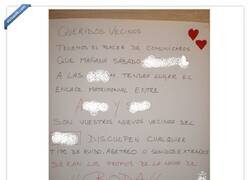 QUERIDOS VECINOS
TENEMOS EL PLACER DE COMUNICAROS
QUE MAÑANA SÁBADO
A LAS H. TENDRÁ LUGAR EL
ENLACE MATRIMONIAL ENTRE
A Y
SON VUESTROS NUEVOS VECINOS DEL
DISCULPEN CUALQUIER
TIPO DE RUIDO, O SONIDOS EXTRAÑOS
SERÁN LOS PROPIOS DE LA NOCHE DE
BODAS